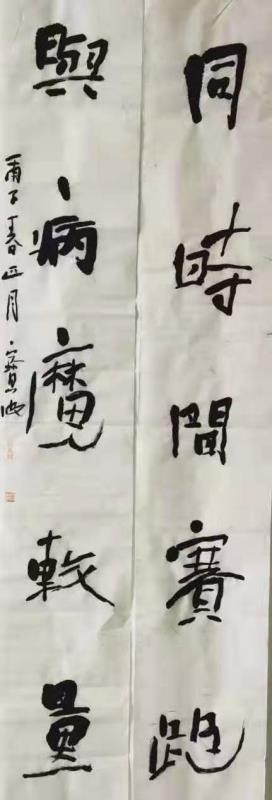 同時間賽跑
與病魔較量
丙子春正月